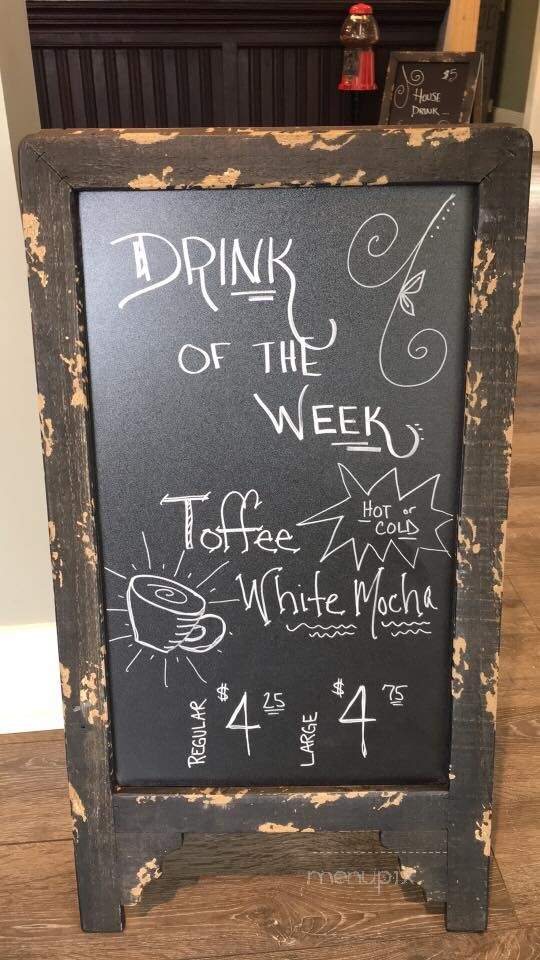 $5
HOUSE
DRINK
DRINK
OF THE
WEEK
Toffee
HOT or
COLD
White Mocha
REGULAR $4 25
LARGE $4 75
menupix